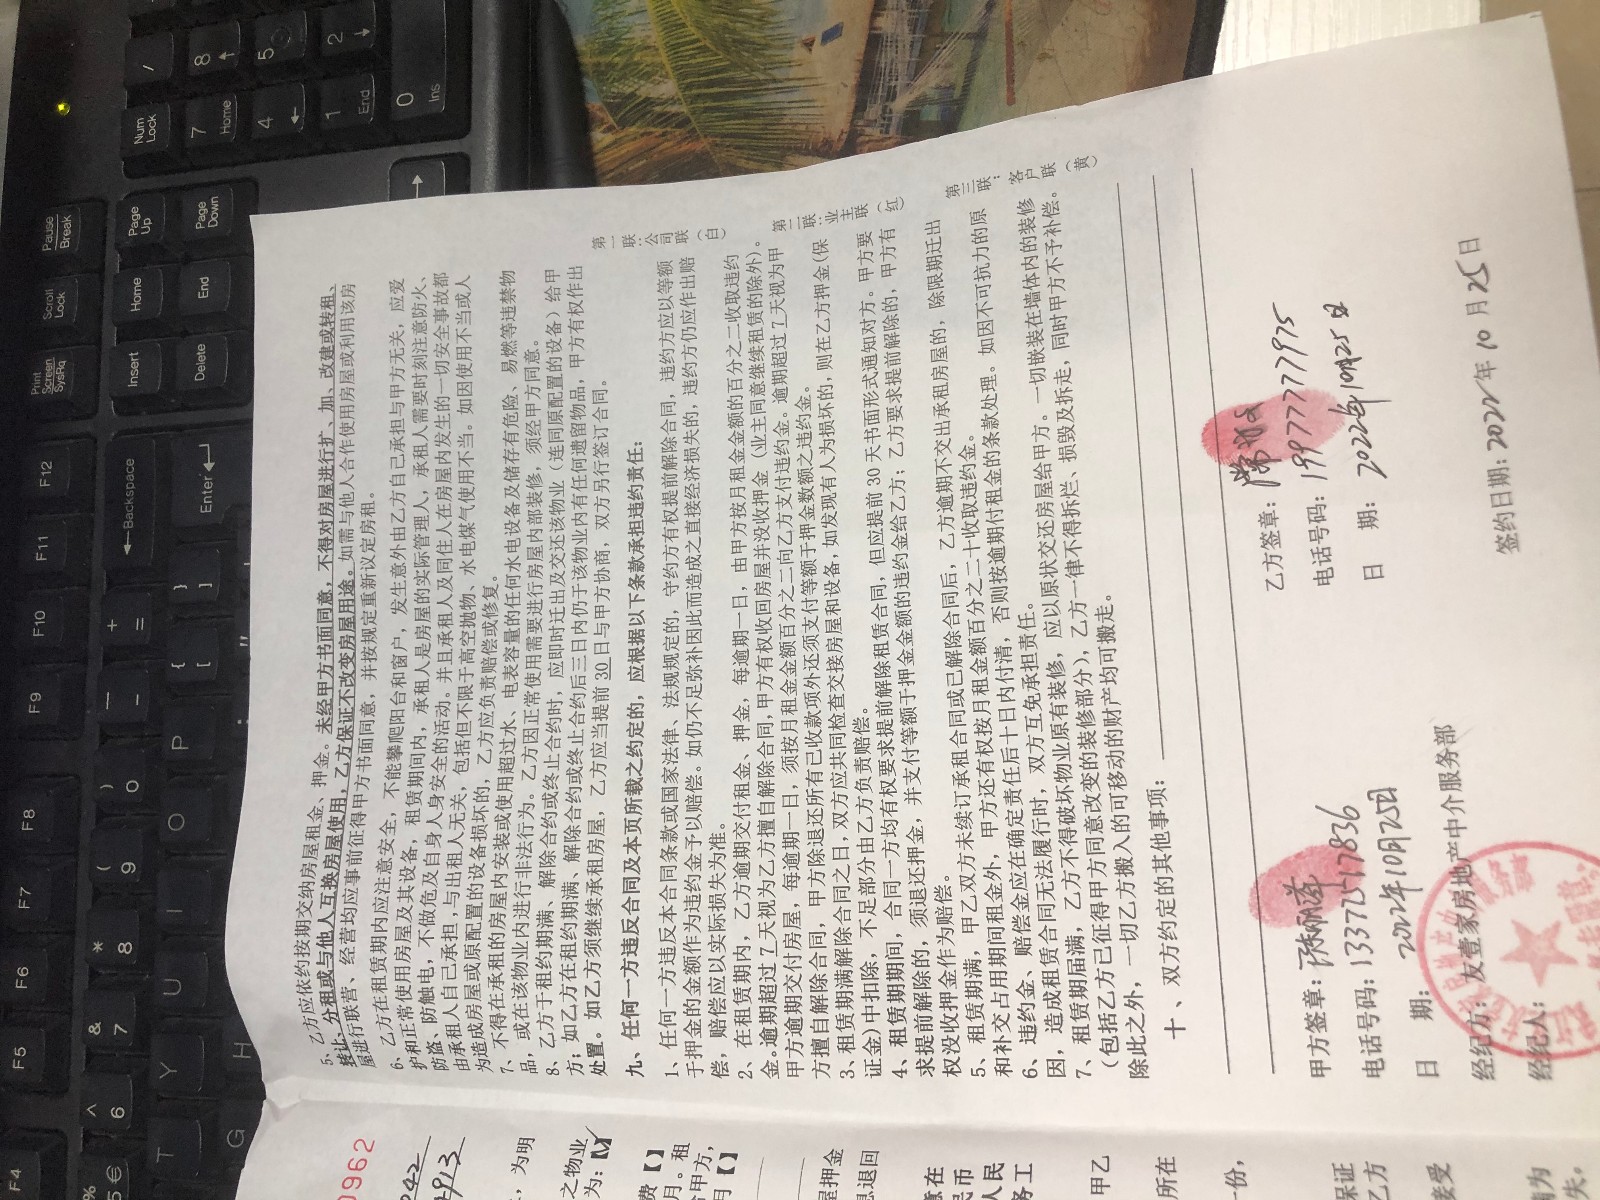 5、乙方应依约按期交纳房屋租金、押金。未经甲方书面同意，不得对房屋进行扩、加、改建或转租、
转让、分租或与他人互换房屋使用，乙方保证不改变房屋用途。如需与他人合作使用房屋或利用该房
屋进行联营、经营均应事前征得甲方书面同意，并按规定重新议定房租。
6、乙方在租赁期内应注意安全，不能攀爬阳台和窗户，发生意外由乙方自己承担与甲方无关，应爱
护和正常使用房屋及其设备，租赁期间内，承租人是房屋的实际管理人，承租人需要时刻注意防火、
防盗、防触电，不做危及自身人身安全的活动。并且承租人及同住人在房屋内发生的一切安全事故都
由承租人自己承担，与出租人无关，包括但不限于高空抛物、水电煤气使用不当。如因使用不当或人
为造成房屋或原配置的设备损坏的，乙方应负责赔偿或修复。
7、不得在承租的房屋内安装或使用超过水、电表容量的任何水电设备及储存有危险、易燃等违禁物
品，或在该物业内进行非法行为。乙方因正常使用需要进行房屋内部装修，须经甲方同意。
8、乙方于租约期满、解除合约或终止合约时，应即时迁出及交还该物业（连同原配置的设备）给甲
方；如乙方在租约期满、解除合约或终止合约后三日内仍于该物业内有任何遗留物品，甲方有权作出
处置。如乙方须继续承租房屋，乙方应当提前30日与甲方协商，双方另行签订合同。
九、任何一方违反合同及本页所载之约定的，应根据以下条款承担违约责任：
1、任何一方违反本合同条款或国家法律、法规规定的，守约方有权提前解除合同，违约方应以等额
于押金的金额作为违约金予以赔偿。如仍不足弥补因此而造成之直接经济损失的，违约方仍应作出赔
偿，赔偿应以实际损失为准。
2、在租赁期内，乙方逾期交付租金、押金，每逾期一日，由甲方按月租金金额的百分之二收取违约
金。逾期超过7天视为乙方擅自解除合同，甲方有权收回房屋并没收押金（业主同意继续租赁的除外）。
甲方逾期交付房屋，每逾期一日，须按月租金金额百分之二向乙方支付违约金。逾期超过7天视为甲
方擅自解除合同，甲方除退还所有已收款项外还须支付等额于押金数额之违约金。
3、租赁期满解除合同之日，双方应共同检查交接房屋和设备，如发现有人为损坏的，则在乙方押金(保
证金)中扣除，不足部分由乙方负责赔偿。
4、租赁期期间，合同一方均有权要求提前解除租赁合同，但应提前30天书面形式通知对方。甲方要
求提前解除的，须退还押金，并支付等额于押金金额的违约金给乙方；乙方要求提前解除的，甲方有
权没收押金作为赔偿。
5、租赁期满，甲乙双方未续订承租合同或已解除合同后，乙方逾期不交出承租房屋的，除限期迁出
和补交占用期间租金外，甲方还有权按月租金额百分之二十收取违约金。
6、违约金、赔偿金应在确定责任后十日内付清，否则按逾期付租金的条款处理。如因不可抗力的原
因，造成租赁合同无法履行时，双方互免承担责任。
7、租赁期届满，乙方不得破坏物业原有装修，应以原状交还房屋给甲方。一切嵌装在墙体内的装修
（包括乙方已征得甲方同意改变的装修部分），乙方一律不得拆烂、损毁及拆走，同时甲方不予补偿。
除此之外，一切乙方搬入的可移动的财产均可搬走。
十、双方约定的其他事项：
第一联：公司联（白）
第二联：业主联（红）
第三联：客户联（黄）
甲方签章：
电话号码：13372517836
日 期：2022年10月25日
经纪方：友壹家房地产中介服务部
经纪人：
乙方签章：
电话号码：19977777975
日 期：2022年10月25日
签约日期：2022年10月25日
0962
，为明
之物业
为：【√】
费【】
月。租
甲方，
月【】
屋押金
息退回
意在
民币
人民
务工
甲乙
所在
份，
保证
乙方
接受
为
失。
Print Screen SysRq
Scroll Lock
Pause Break
Insert
Home
Page Up
Delete
End
Page Down
Num Lock
/
7 Home
8
4
5
1 End
2
0 Ins
F4
F5
F6
F7
F8
F9
F10
F11
F12
Backspace
Enter
% 5 €
^ 6
& 7
* 8
( 9
) 0
+ =
T
Y
U
I
O
P
{ [
} ]
G
H